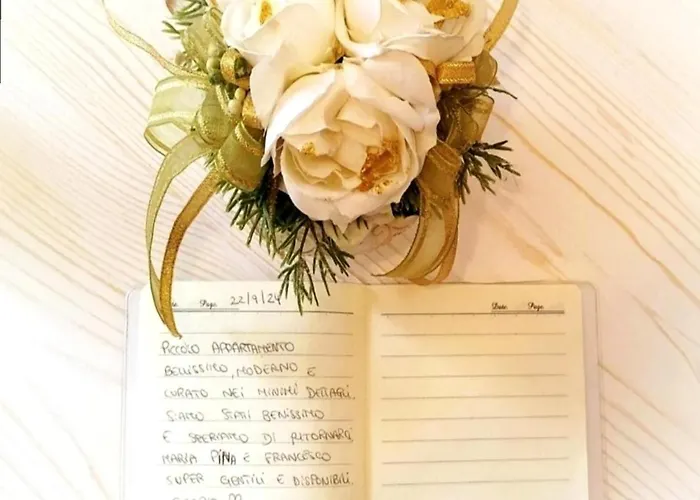 Page 22/9/24
Date Page
PICCOLO APPARTAMENTO
BELLISSIMO, MODERNO E
CURATO NEI MINIMI DETTAGLI.
SIAMO STATI BENISSIMO
E SPERIAMO DI RITORNARCI
MARIA PINA E FRANCESCO
SUPER GENTILI E DISPONIBILI.